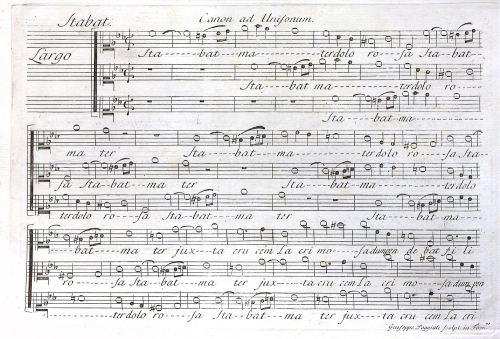 Stabat. Canon ad Unisonum.
Largo
Sta----bat--ma------terdolo ro----sa Stabat---
Sta----bat ma-----terdolo ro----
Sta----bat-ma-----
ma ter Sta----bat--ma------terdolo ro----sa Sta
sa Sta--bat--ma ter Sta----bat ma-----terdolo
terdolo ro---sa Sta--bat--ma ter Sta----bat-ma----
--bat----ma ter jux--ta cru cem La cri mo---sa dum pen de bat fi li
ro-----sa Sta bat---ma ter jux---ta cru cem La cri mo---sa dum pen
----terdolo ro---sa Sta bat---ma ter jux---ta cru cem La cri
Giuseppe Poggiali sculpt. in